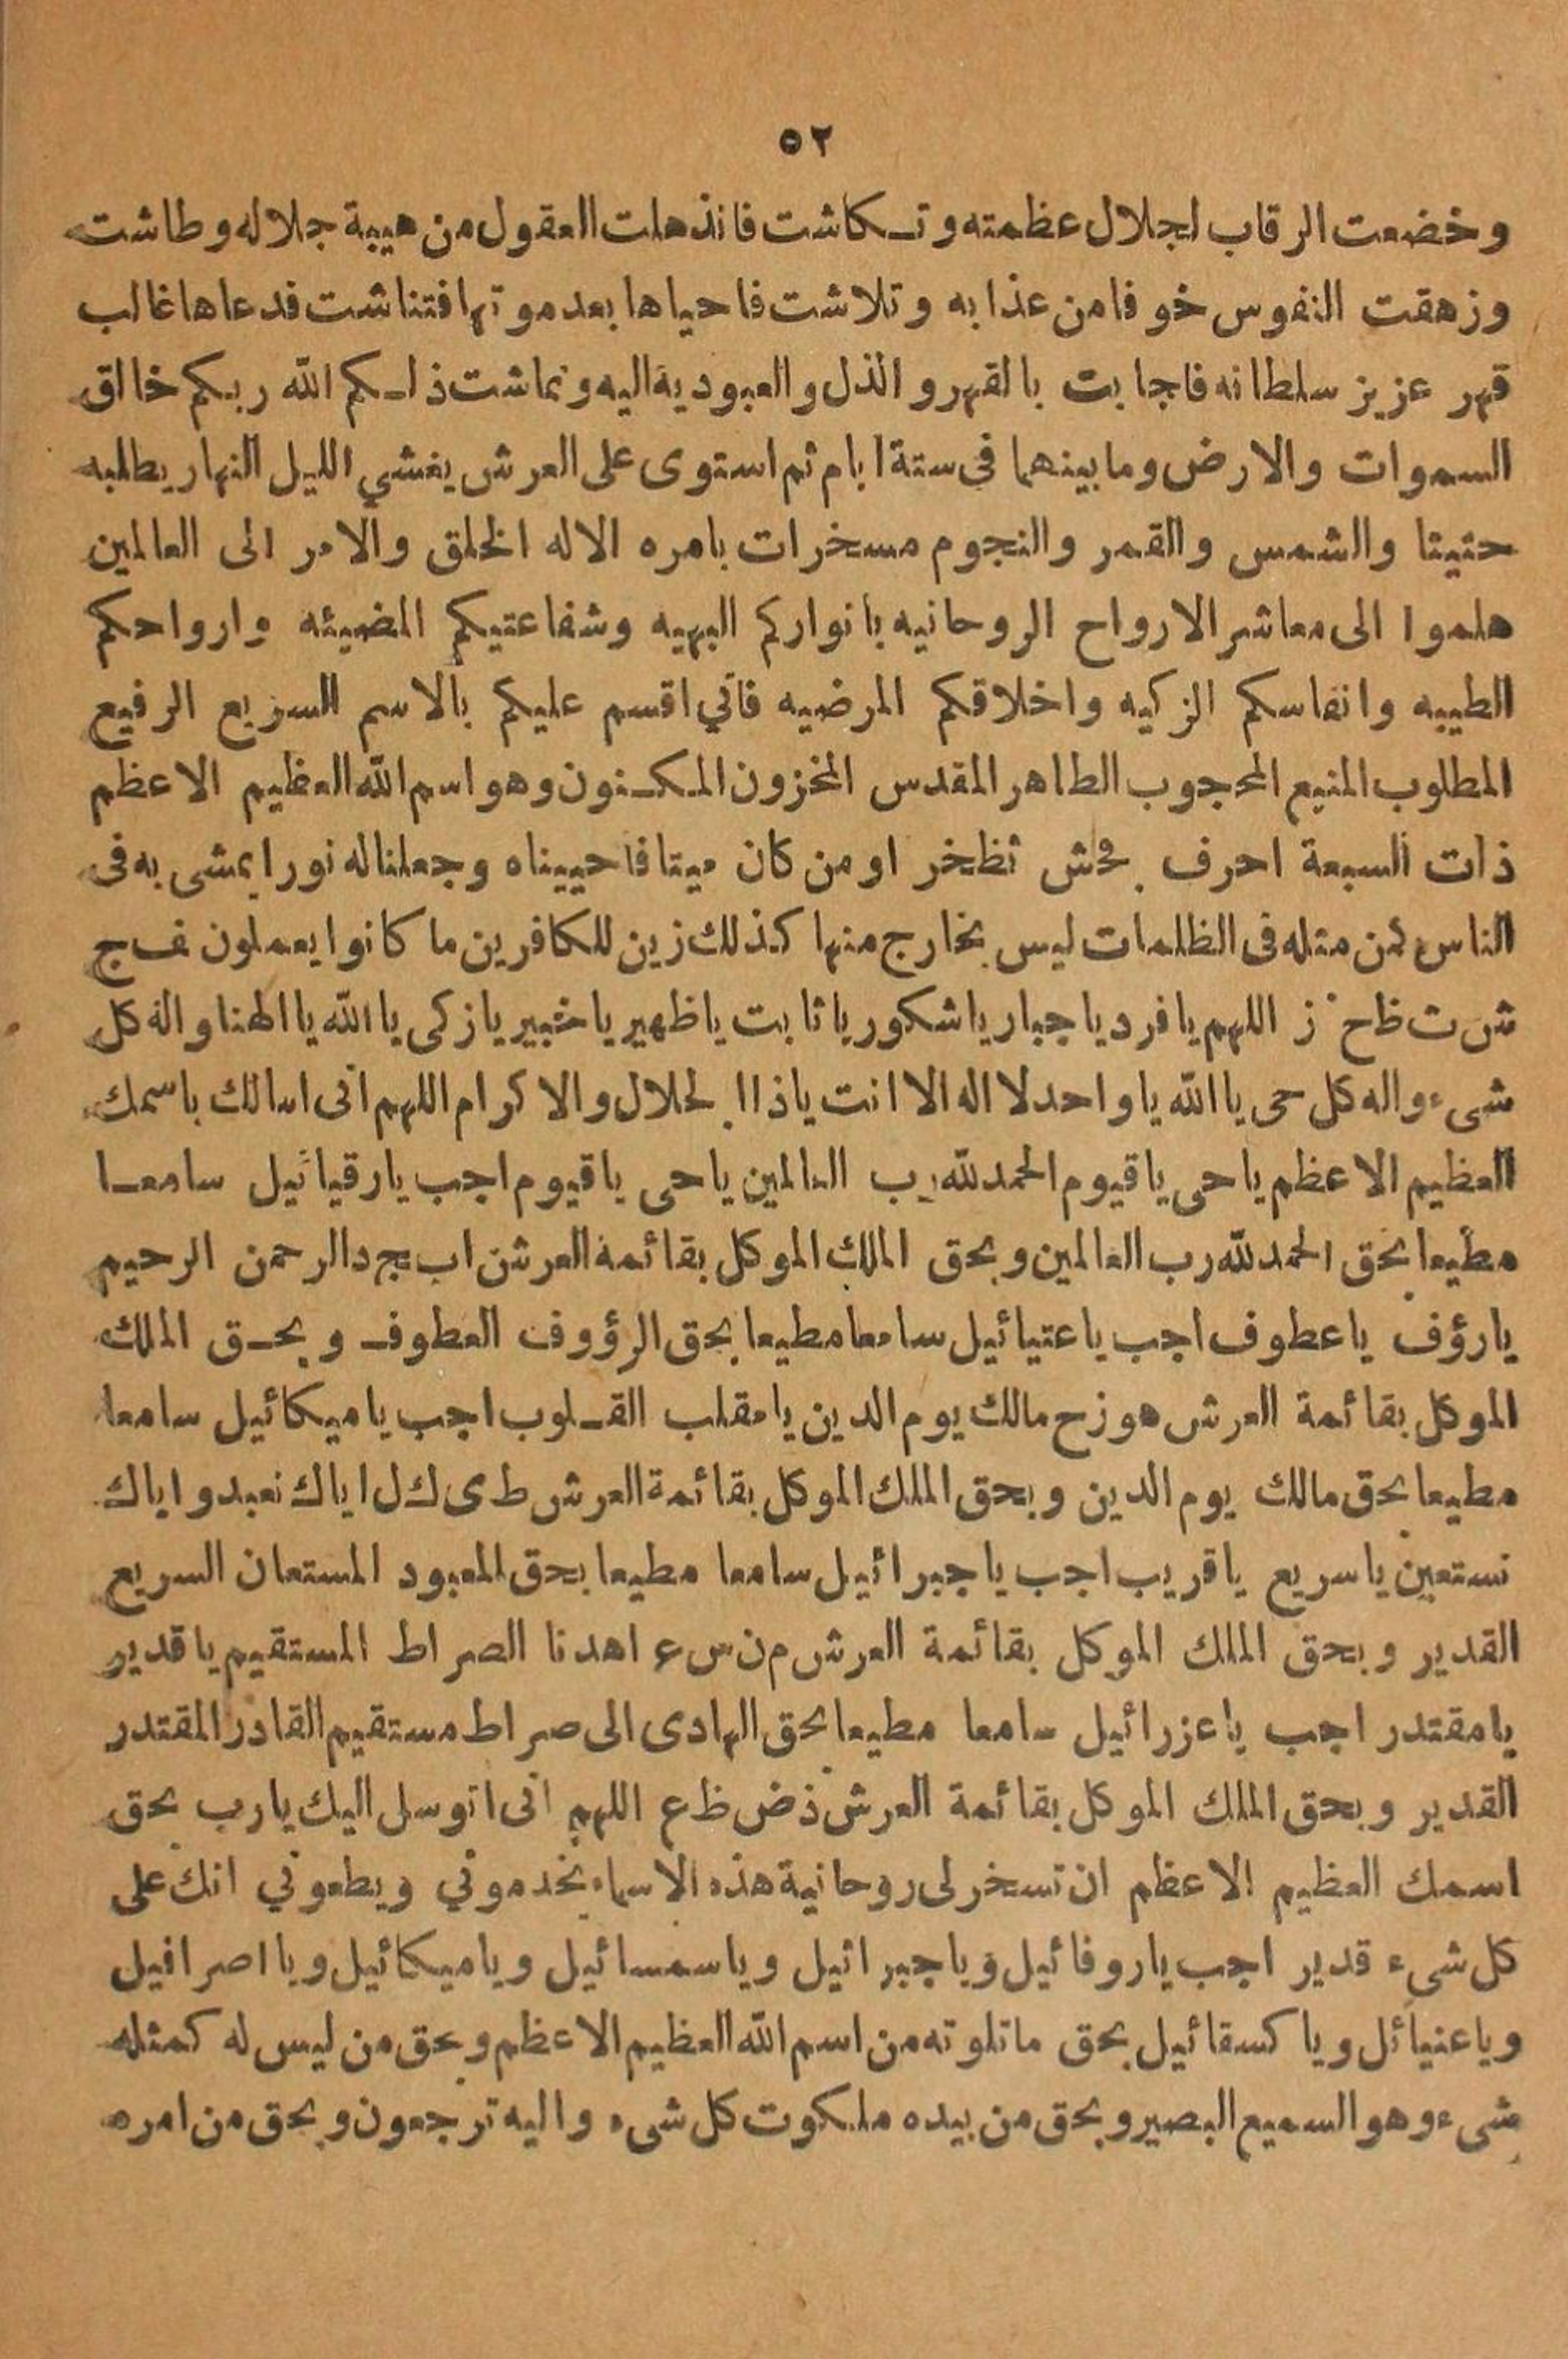 ٥٢
وخضعت الرقاب لجلال عظمته وتكاشت فانذهلت العقول من هيبة جلاله وطاشت
وزهقت النفوس خوفا من عذابه وتلاشت فاحياها بعد موتها فتناشت فدعاها غالب
قهر عزيز سلطانه فاجابت بالقهر والذل والعبودية اليه ونماشت ذلكم الله ربكم خالق
السموات والارض وما بينهما في ستة ايام ثم استوى على العرش يغشي الليل النهار يطلبه
حثيثا والشمس والقمر والنجوم مسخرات بامره الا له الخلق والامر الى العالمين
هلموا الى معاشر الارواح الروحانيه بانواركم البهيه وشفاعتيكم المضيئه وارواحكم
الطيبه وانفاسكم الزكيه واخلاقكم المرضيه فاني اقسم عليكم بالاسم السريع الرفيع
المطلوب المنيع المحجوب الطاهر المقدس المخزون المكنون وهو اسم الله العظيم الاعظم
ذات السبعة احرف ثظخر او من كان ميتا فاحييناه وجعلنا له نورا يمشى به فى
الناس كمن مثله فى الظلمات ليس بخارج منها كذلك زين للكافرين ما كانوا يعملون ف ج
ش ت ظ خ ز اللهم يا فرد يا جبار يا شكور يا ثابت يا ظهير يا خبير يا زكى يا الله يا الهنا واله كل
شىء واله كل حى يا الله يا واحد لا اله الا انت ياذا الجلال والاكرام اللهم انى اسالك باسمك
العظيم الاعظم يا حى يا قيوم الحمد لله رب العالمين يا حى يا قيوم اجب يا رقيائيل سامعا
مطيعا بحق الحمد لله رب العالمين وبحق الملك الموكل بقائمة العرش اب ج د الرحمن الرحيم
يا رؤف يا عطوف اجب يا عتيائيل سامعا مطيعا بحق الرؤوف العطوف وبحق الملك
الموكل بقائمة العرش هوزح مالك يوم الدين يا مقلب القلوب اجب يا ميكائيل سامعا
مطيعا بحق مالك يوم الدين وبحق الملك الموكل بقائمة العرش ط ى ك ل اياك نعبد واياك
نستعين يا سريع يا قريب اجب يا جبرائيل سامعا مطيعا بحق المعبود المستعان السريع
القدير وبحق الملك الموكل بقائمة العرش م ن س ع اهدنا الصراط المستقيم يا قدير
يا مقتدر اجب يا عزرائيل سامعا مطيعا بحق الهادى الى صراط مستقيم القادر المقتدر
القدير وبحق الملك الموكل بقائمة العرش ذ ض ظ ع اللهم انى اتوسل اليك يا رب بحق
اسمك العظيم الاعظم ان تسخر لى روحانية هذه الاسماء يخدموني ويطعوني انك على
كل شىء قدير اجب يا روفائيل ويا جبرائيل ويا سمسائيل ويا ميكائيل ويا اصرافيل
ويا عنيائل ويا كسقائيل بحق ما تلوته من اسم الله العظيم الاعظم وبحق من ليس له كمثله
شىء وهو السميع البصير وبحق من بيده ملكوت كل شىء واليه ترجعون وبحق من امره